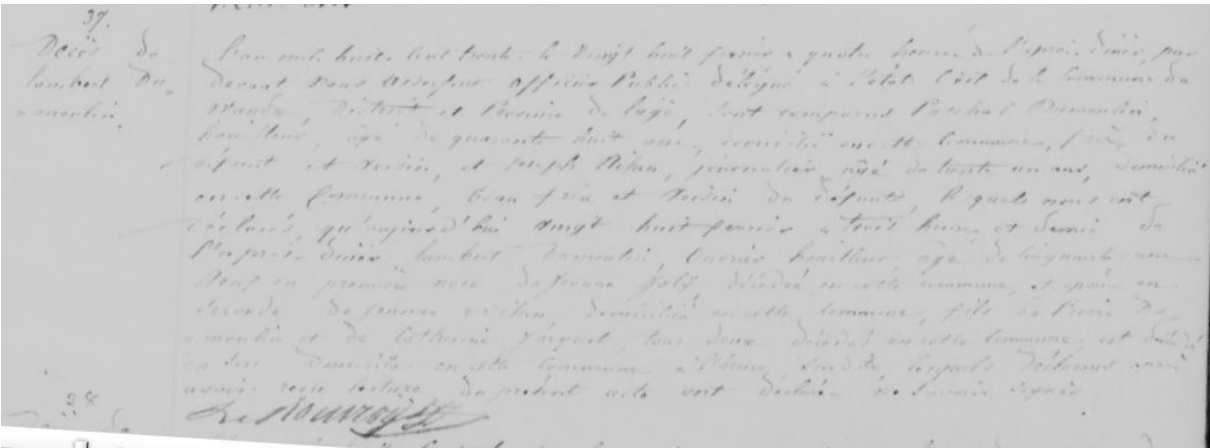 37.
Decès de
lambert Du=
=moulin.
L'an mil huit cent trente le vingt huit fevrier a quatre heures de l'après diner, par
devant nous assesseur officier Public délégué à l'état Civil de la Commune de
District et Province de Liége, sont comparus Paschal Dumoulin,
houilleur, agé de quarante huit ans, domicilié en cette Commune, frère du
défunt et voisin, et Joseph journalier, agé de trente un ans, domicilié
en cette Commune, beau frère et voisin du défunt, lesquels nous ont
déclarés, qu'aujourd'hui vingt huit fevrier a trois heures et demie de
l'après diner, lambert Dumoulin, ouvrier houilleur agé de cinquante ans
veuf en première noce de Jeanne décédée en cette commune, et epoux en
seconde de jeanne domicilié en cette Commune, fils de Pierre Du=
=moulin et de Catherine tous deux décédés en cette Commune, est décédé
en son domicile en cette Commune à l'heure susdite lesquels déclarans après
avoir reçu lecture du présent acte ont déclaré ne savoir signer
38